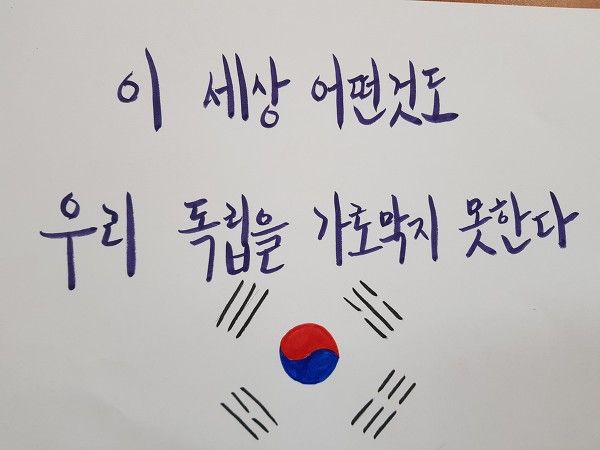 이 세상 어떤것도
우리 독립을 가로막지 못한다